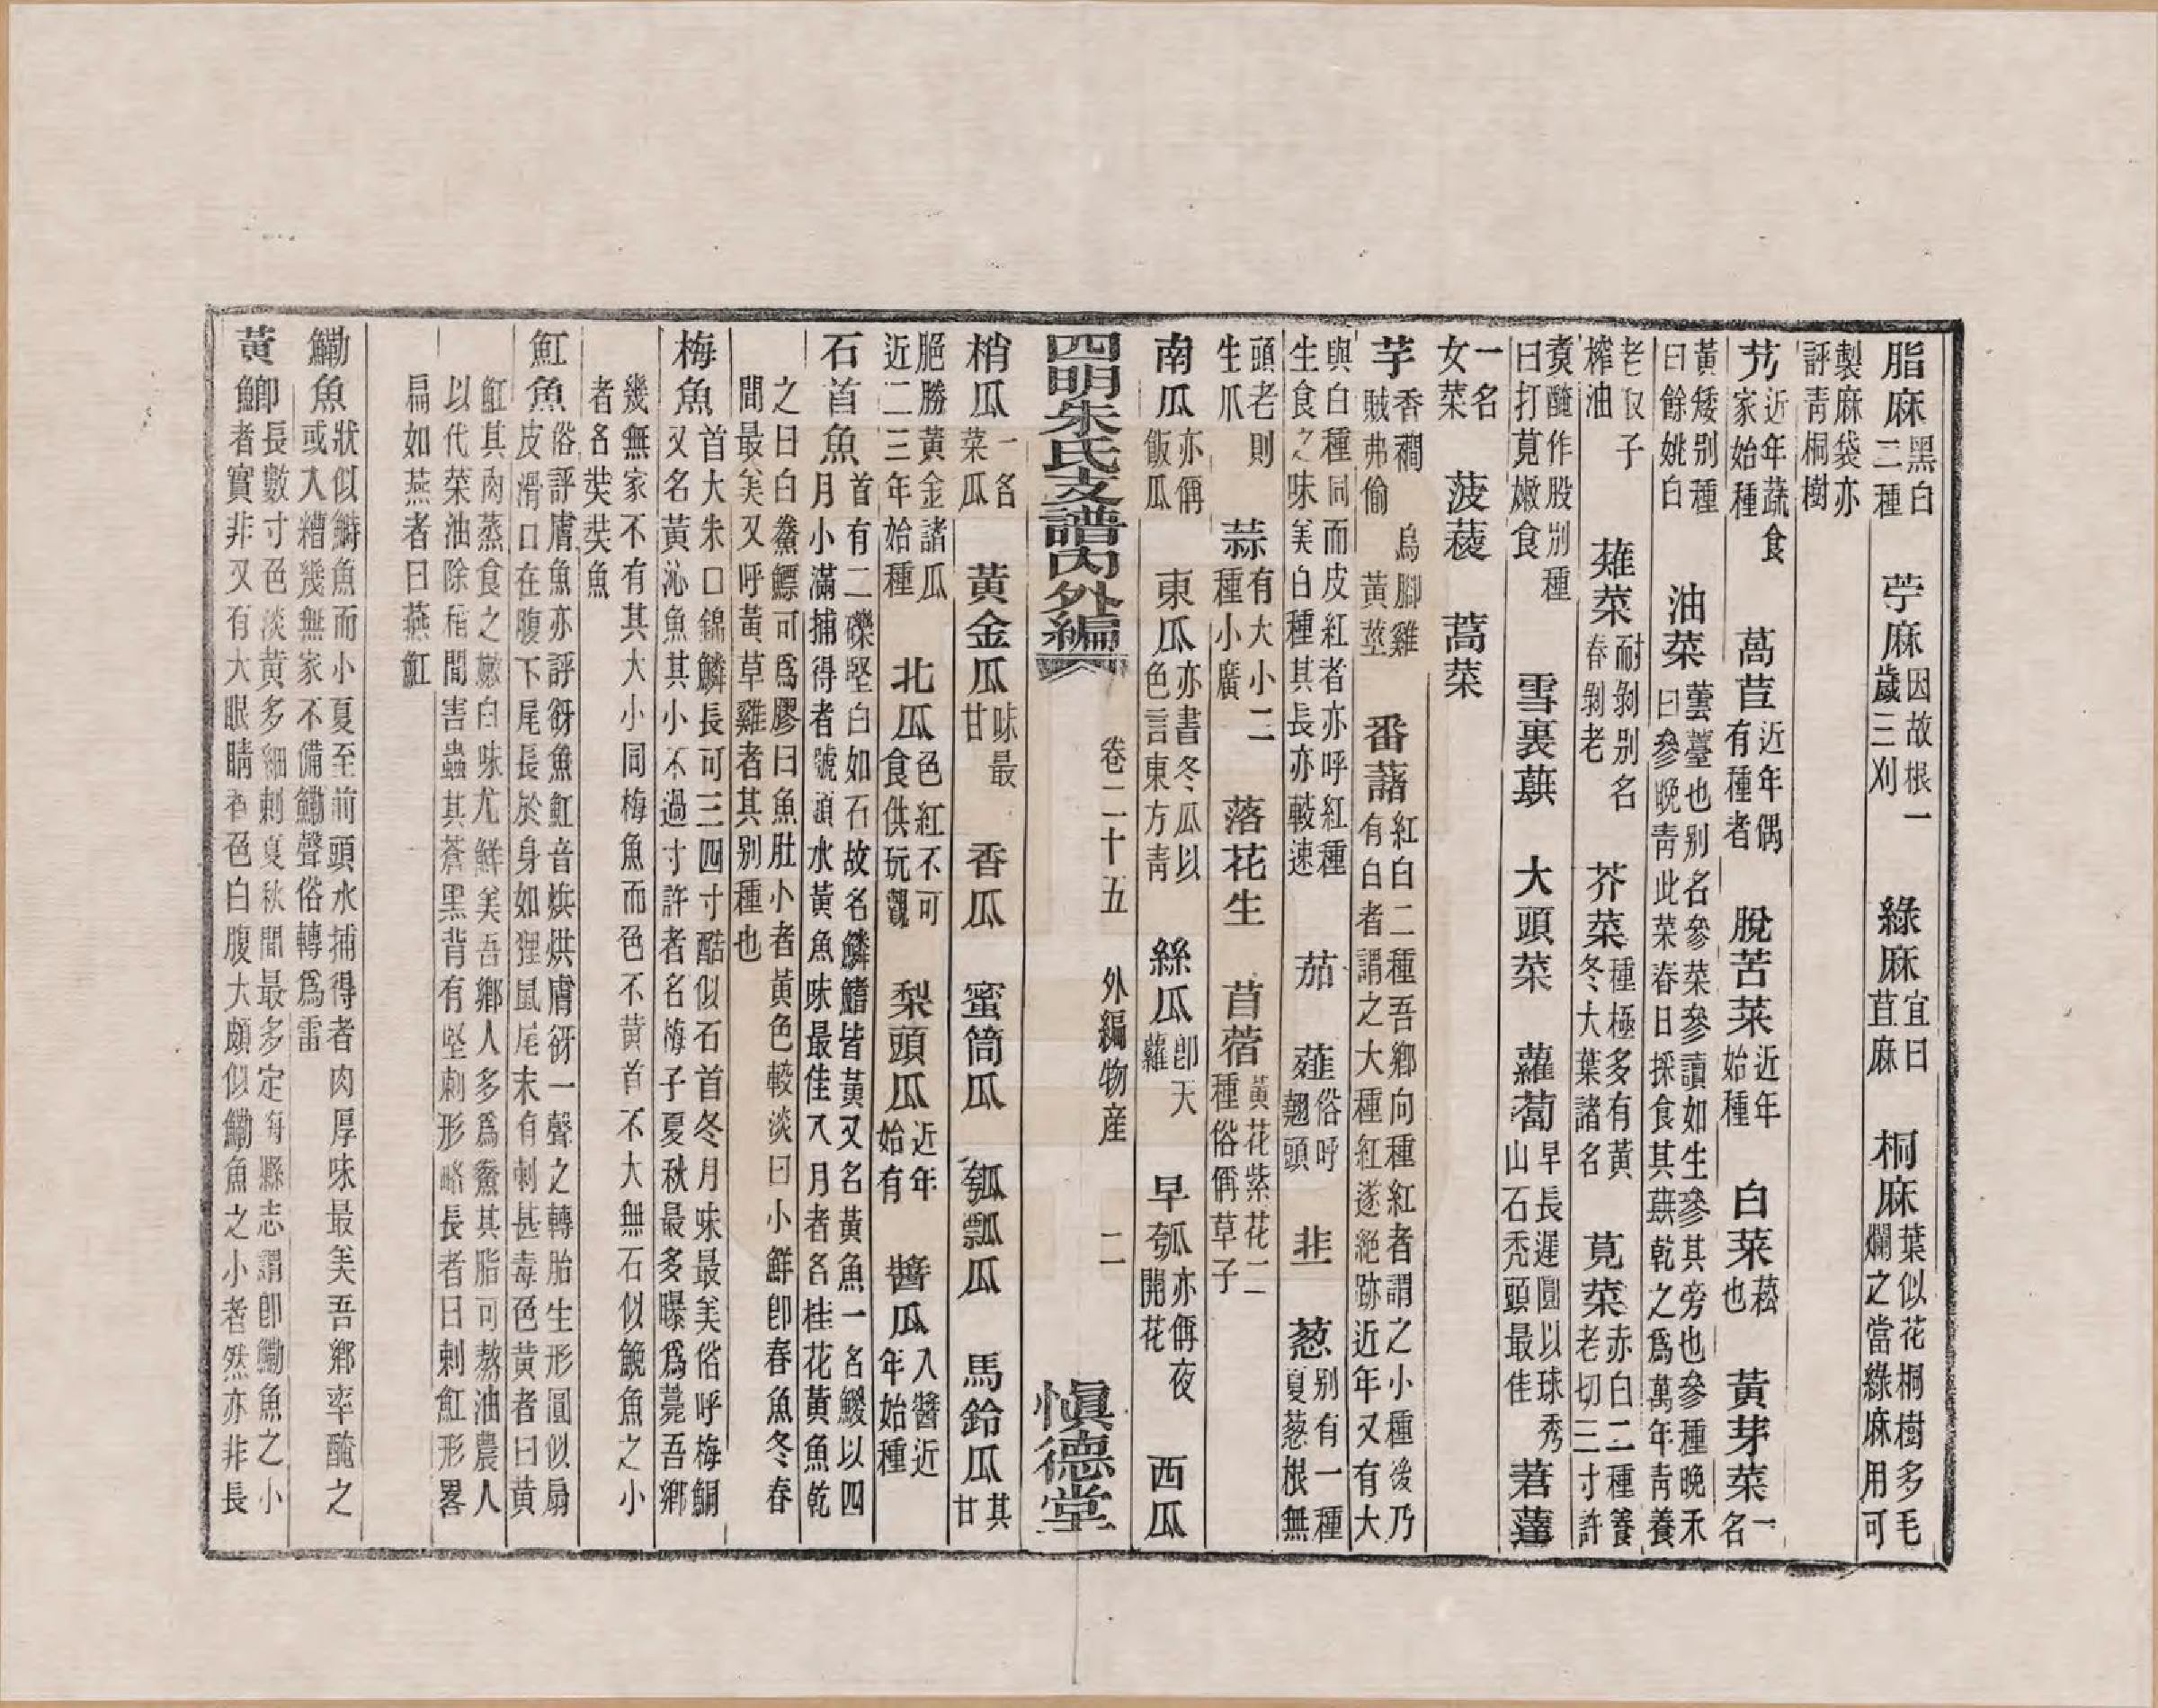 脂麻黑白二種　苧麻因故根一歲三刈　綠麻宜曰苴麻　桐麻葉似花桐樹多毛爛之當綠麻用可
製麻袋亦評靑桐樹
艿近年蔬食家始種　萵苣近年偶有種者　脫苦菜近年始種　白菜菘也　黃芽菜一名
黃矮別種曰餘姚白　油菜蕓薹也別名參菜參讀如生參其旁也參種晚禾曰參晚靑此菜春日採食其蕻乾之爲萬年靑養
老収子榨油　薙菜耐剝別名春剝老　芥菜種極多有黃冬大葉諸名　莧菜赤白二種養老切三寸許
煑醃作股別種曰打莧嫩食　雪裏蕻　大頭菜　蘿蔔早長遲圓以球秀山石禿頭最佳　莙薘
一名女菜　菠薐　蒿菜
芋香穪烏腳雞賊弗偷黃莖　番藷紅白二種吾鄉向種紅者謂之小種後乃有白者謂之大種紅遂絕跡近年又有大
與白種同而皮紅者亦呼紅種生食之味美白種其長亦較速　茄　薤俗呼翹頭　韭　葱別有一種夏葱根無
頭老則生爪　蒜有大小二種小廣　落花生　苜蓿黃花紫花二種俗偁草子
南瓜亦偁飯瓜　東瓜亦書冬瓜以色言東方靑　絲瓜卽天蘿　早瓠亦偁夜開花　西瓜
四明朱氏支譜內外編　卷二十五　外編物產　二　愼德堂
梢瓜一名菜瓜　黃金瓜味最甘　香瓜　蜜筒瓜　瓠瓢瓜　馬鈴瓜其甘
脃勝黃金諸瓜近二三年始種　北瓜色紅不可食供玩觀　梨頭瓜近年始有　醬瓜入醬近年始種
石首魚首有二礫堅白如石故名鱗鰭皆黃又名黃魚一名鯼以四月小滿捕得者號頭水黃魚味最佳八月者名桂花黃魚乾
之曰白鯗鰾可爲膠曰魚肚小者黃色較淡曰小鮮卽春魚冬春間最美又呼黃草雞者其別種也
梅魚首大朱口錦鱗長可三四寸酷似石首冬月味最美俗呼梅鮦又名黃沁魚其小不過寸許者名梅子夏秋最多曝爲薨吾鄉
幾無家不有其大小同梅魚而色不黃首不大無石似鮸魚之小者名奘奘魚
魟魚俗評膚魚亦評䘕魚魟音烘烘膚䘕一聲之轉胎生形圓似扇皮滑口在腹下尾長於身如狸鼠尾末有刺甚毒色黃者曰黃
魟其肉蒸食之嫩白味尤鮮美吾鄉人多爲鯗其脂可熬油農人以代菜油除稻間害蟲其蒼黑背有堅刺形略長者曰刺魟形畧
扁如燕者曰燕魟
鰳魚狀似鰣魚而小夏至前頭水捕得者肉厚味最美吾鄉率醃之或入糟幾無家不備鰳聲俗轉爲雷
黃鯽長數寸色淡黃多細刺夏秋間最多定海縣志謂卽鰳魚之小者實非又有大眼睛者色白腹大頗似鰳魚之小者然亦非長